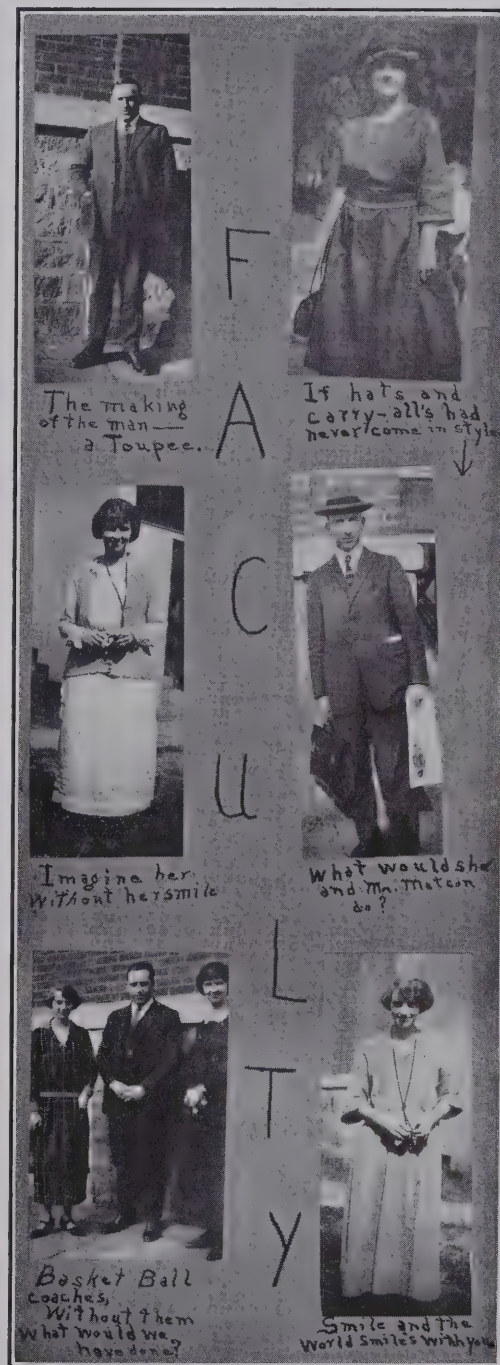 F
A
C
U
L
T
Y
The making
of the man—
a Toupee.
If hats and
carry-all's had
never come in style
Imagine her
without her smile
What would she
and Mr. Matson
do?
Basket Ball
coaches,
Without them
What would we
have done?
Smile and the
World Smiles with you